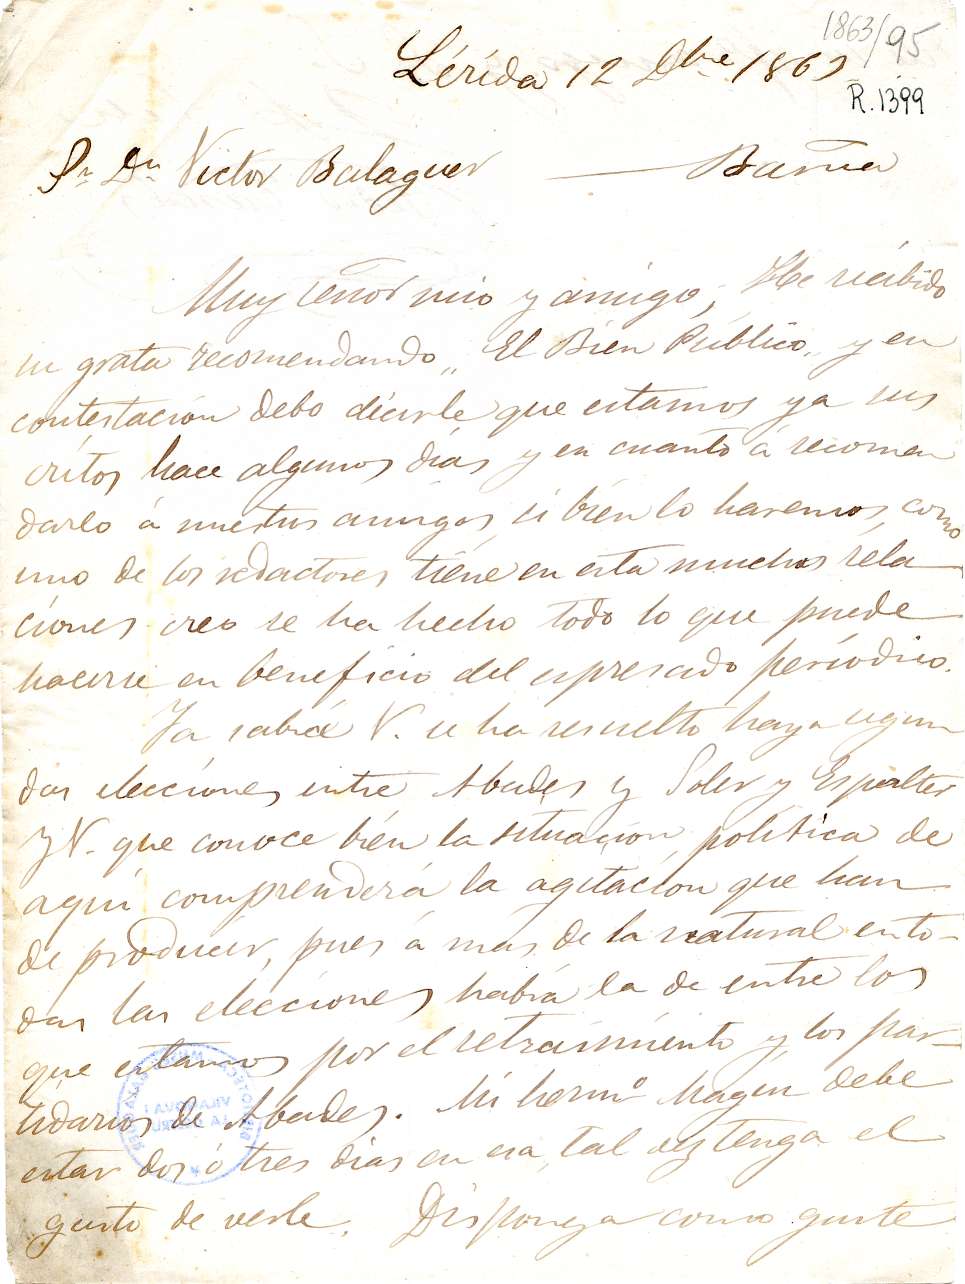 1863/95
R. 1399
Lérida 12 Dbre 1863
Sr. Dn. Victor Balaguer — Barna
Muy Señor mio y amigo, He recibido
su grata recomendando „ El Bien Público „ y en
contestación debo décirle que estamos ya sus
critos hace algunos días, y en cuanto á recomen
darlo á nuestros amigos, si bien lo haremos, como
uno de los redactores tiene en esta muchas rela
ciones creo se ha hecho todo lo que puede
hacerse en beneficio del espresado periodico.
Ya sabrá V. se ha resuelto haya segun
das elecciones entre Abades y Soler y Espalter
y V. que conoce bién la situacion politica de
aquí comprenderá la agitación que han
de producir, pues á mas de la natural en to-
das las elecciones habrá la de entre los
que estamos por el retraimiento y los par-
tidarios de Abades. Mi hermo Magin debe
estar dos ó tres dias en esa, tal vez tenga el
gusto de verle. Disponga como guste
BIBLIOTECA MUSEU BALAGUER
VILANOVA I
LA GELTRU